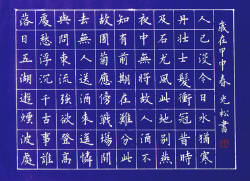 落日五湖遊煙波處
處愁浮沉千古事誰
與問東流強欲登高
去無人送酒來遙憐
故園菊應傍戰場開
知有前期在難分此
夜中無將故人酒不
及石尤風此地別燕
丹壯士髮衝冠昔時
人已沒今日水猶寒
歲在甲申春 光松書